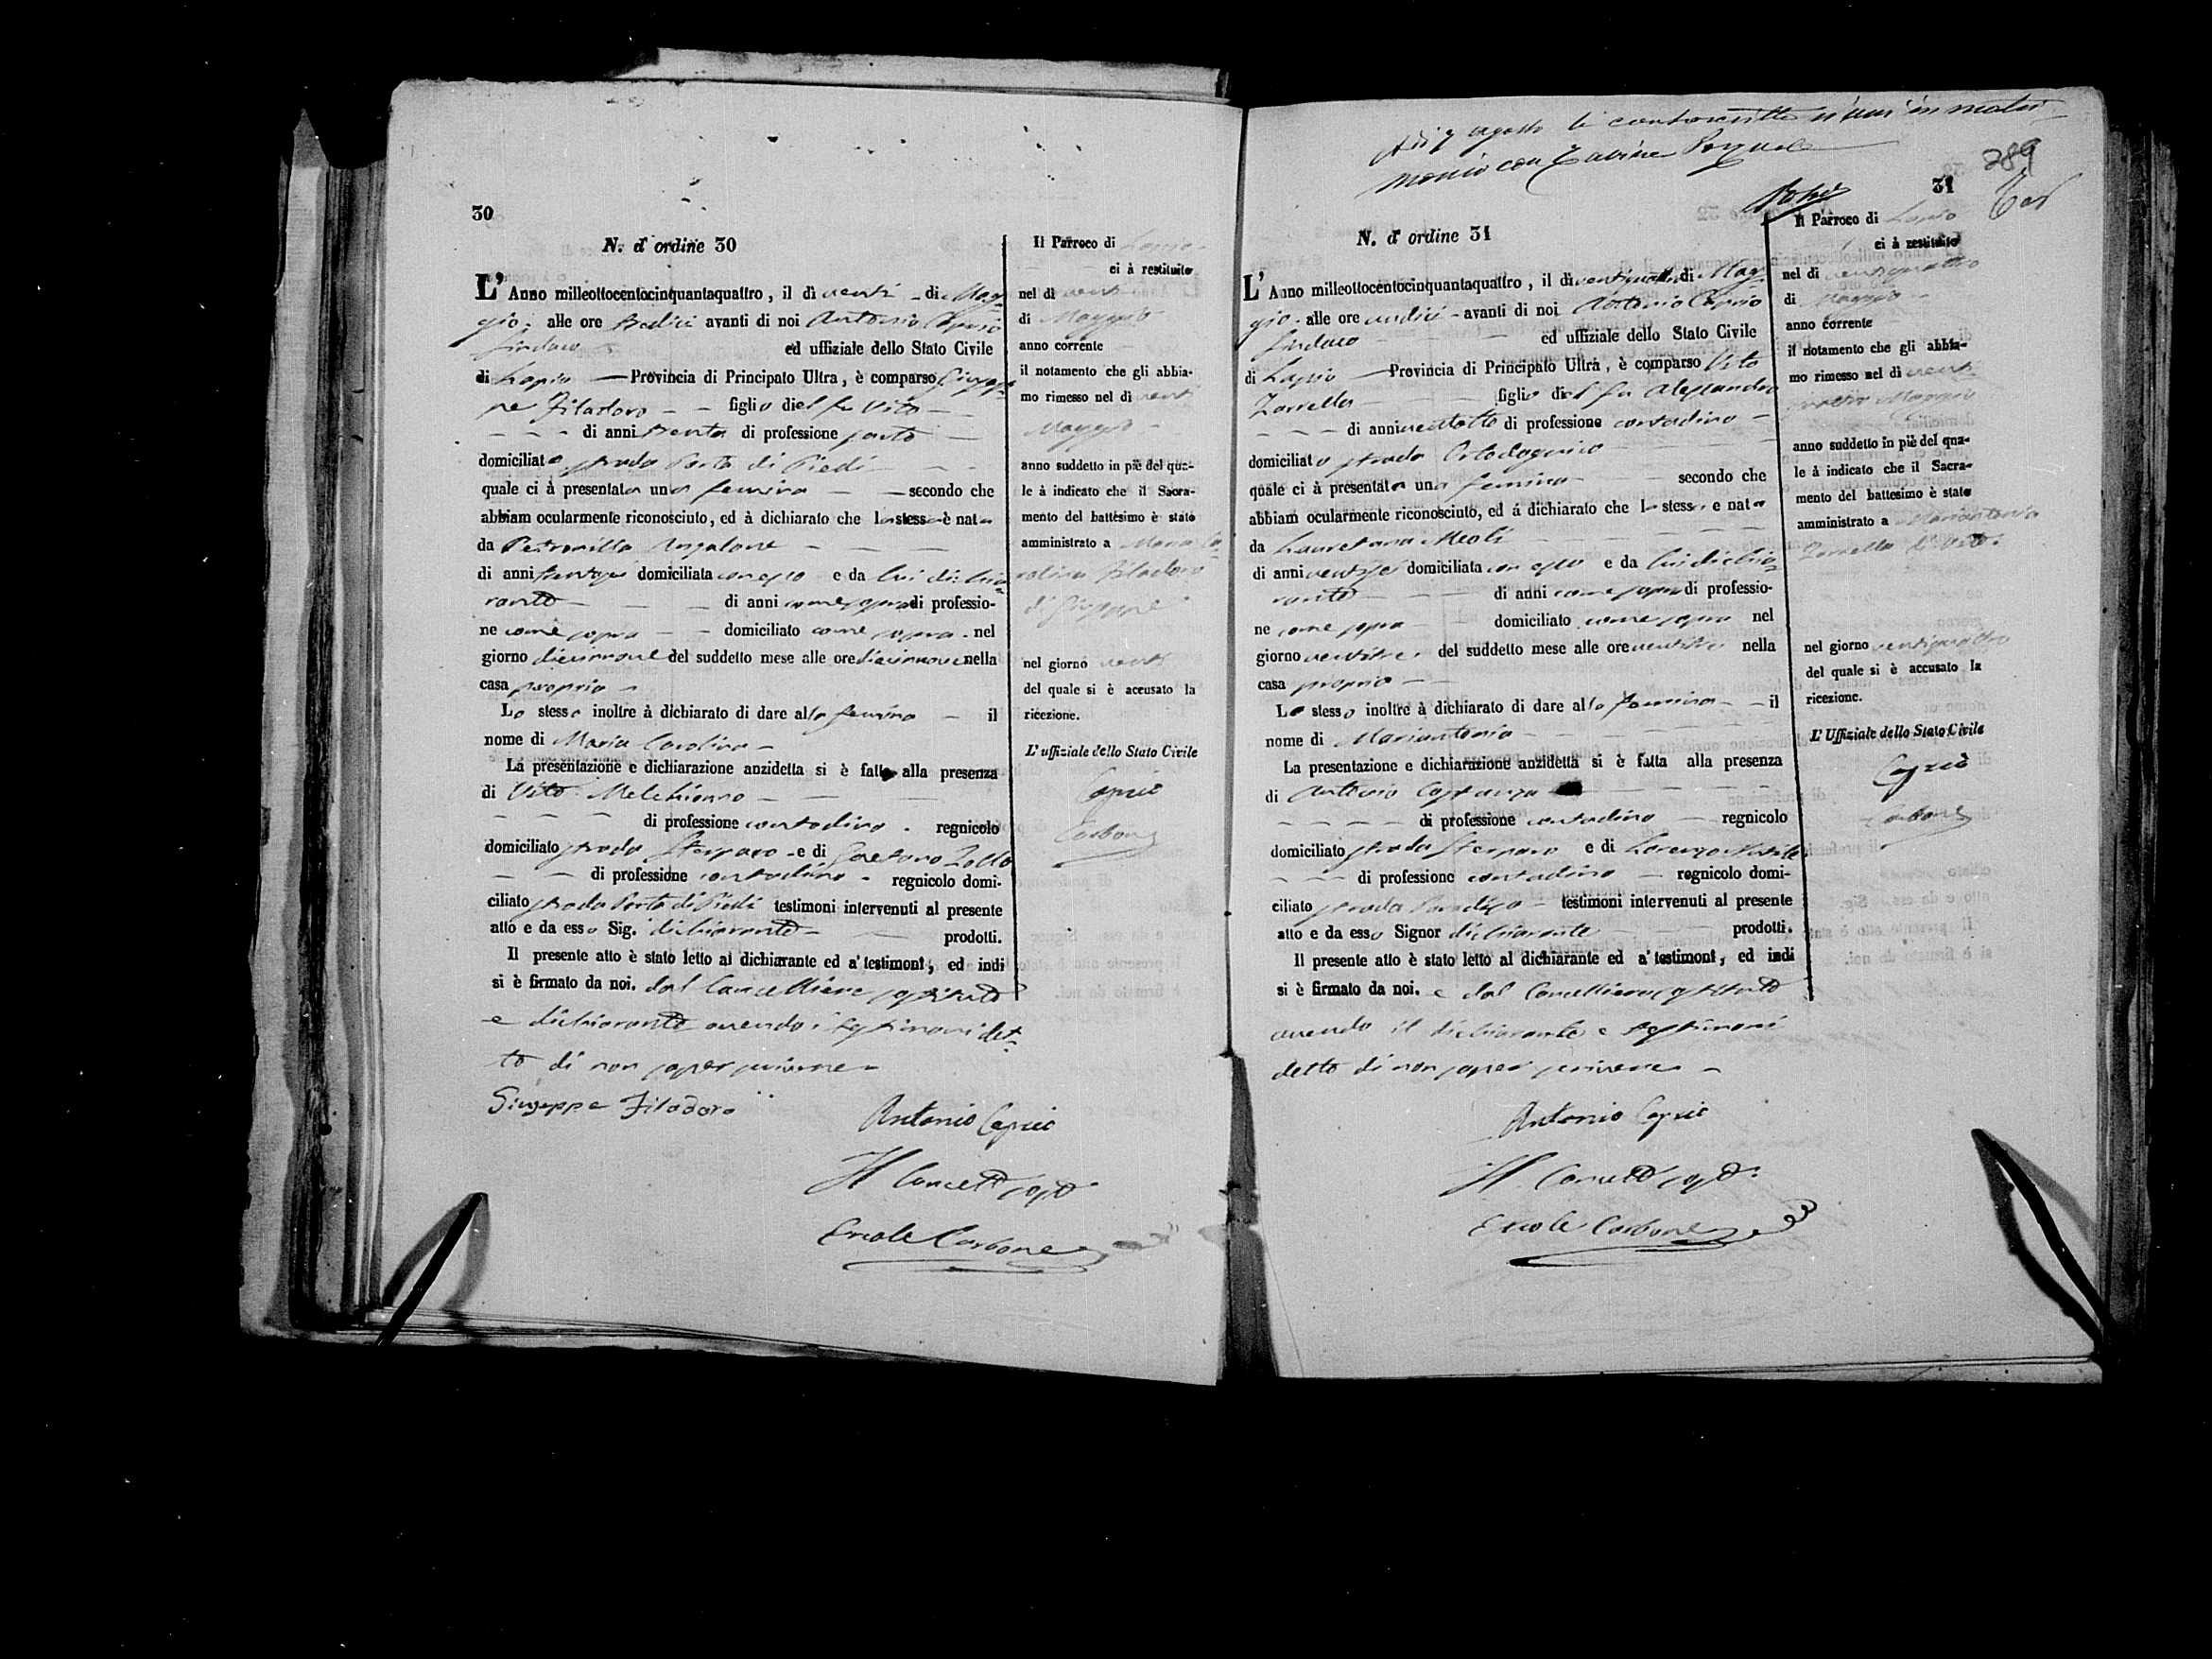 30
N. d' ordine 30
L' Anno milleottocentocinquantaquattro, il dì venti di Mag-
gio, alle ore tredici avanti di noi Antonio Caprio
Sindaco ed uffiziale dello Stato Civile
di Lapio Provincia di Principato Ultra, è comparso Giusep-
pe Filadoro figlio del fu Vito
di anni trenta di professione sarto
domiciliato strada Porta di Piedi
quale ci à presentata una femina secondo che
abbiam ocularmente riconosciuto, ed à dichiarato che la stessa è nata
da Petronilla
di anni domiciliata con esso e da lui dichia-
rante di anni come sopra di professio-
ne come sopra domiciliato come sopra nel
giorno diecinnove del suddetto mese alle ore diecinnove nella
casa propria
Lo stesso inoltre à dichiarato di dare alla femina il
nome di Maria Carolina
La presentazione e dichiarazione anzidetta si è fatta alla presenza
di Vito Melchionno
di professione contadino regnicolo
domiciliato strada Sterparo e di Gaetano Zollo
di professione contadino regnicolo domi-
ciliato strada Porta di Piedi testimoni intervenuti al presente
atto e da esso Sig. dichiarante prodotti.
Il presente atto è stato letto al dichiarante ed a' testimoni, ed indi
si è firmato da noi. dal Cancelliere sostituto
e dichiarante avendo i testimoni det-
to di non saper scrivere
Giuseppe Filadoro
Antonio Caprio
Il Cancell. sost.
Ercole Carbone
Il Parroco di Lapio
ci à restituito
nel dì venti
di Maggio
anno corrente
il notamento che gli abbia-
mo rimesso nel dì venti
Maggio
anno suddetto in piè del qua-
le à indicato che il Sacra-
mento del battesimo è stato
amministrato a Maria Ca-
rolina Filadoro
di Giuseppe
nel giorno venti
del quale si è accusato la
ricezione.
L' uffiziale dello Stato Civile
Caprio
Carbone
A dì 7 agosto la controscritta si unì in matri-
monio con
289
31
N. d' ordine 31
L' Anno milleottocentocinquantaquattro, il dì ventiquattro di Mag-
gio alle ore undici avanti di noi Antonio Caprio
Sindaco ed uffiziale dello Stato Civile
di Lapio Provincia di Principato Ultra, è comparso Vito
Zarrella figlio del fu Alessandro
di anni ventotto di professione contadino
domiciliato strada
quale ci à presentata una femina secondo che
abbiam ocularmente riconosciuto, ed á dichiarato che la stessa e nata
da Lauretana Meoli
di anni ventisei domiciliata con esso e da lui dichia-
rante di anni come sopra di professio-
ne come sopra domiciliato come sopra nel
giorno ventitre del suddetto mese alle ore ventitre nella
casa propria
Lo stesso inoltre à dichiarato di dare alla femina il
nome di Mariantonia
La presentazione e dichiarazione anzidetta si è fatta alla presenza
di Antonio Costanza
di professione contadino regnicolo
domiciliato strada Sterparo e di Lorenzo
di professione contadino regnicolo domi-
ciliato strada Paradiso testimoni intervenuti al presente
atto e da esso Signor dichiarante prodotti.
Il presente atto è stato letto al dichiarante ed a' testimoni, ed indi
si è firmato da noi. e dal Cancelliere sostituto
avendo il dichiarante e testimoni
detto di non saper scrivere
Antonio Caprio
Il Cancell. sost.
Ercole Carbone
Il Parroco di Lapio
ci à restituito
nel dì ventiquattro
di Maggio
anno corrente
il notamento che gli abbia-
mo rimesso nel dì venti
quattro Maggio
anno suddetto in piè del qua-
le à indicato che il Sacra-
mento del battesimo è stato
amministrato a Mariantonia
Zarrella di Vito
nel giorno ventiquattro
del quale si è accusato la
ricezione.
L' Uffiziale dello Stato Civile
Caprio
Carbone